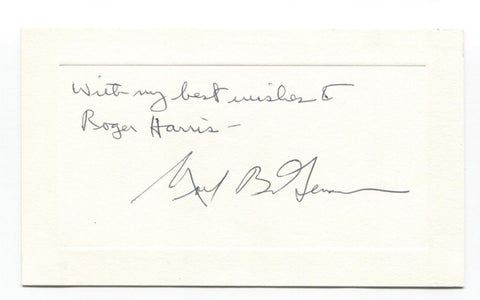 With my best wishes to
Roger Harris -
B.